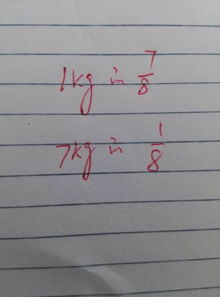 1kg in 7/8
7kg in 1/8